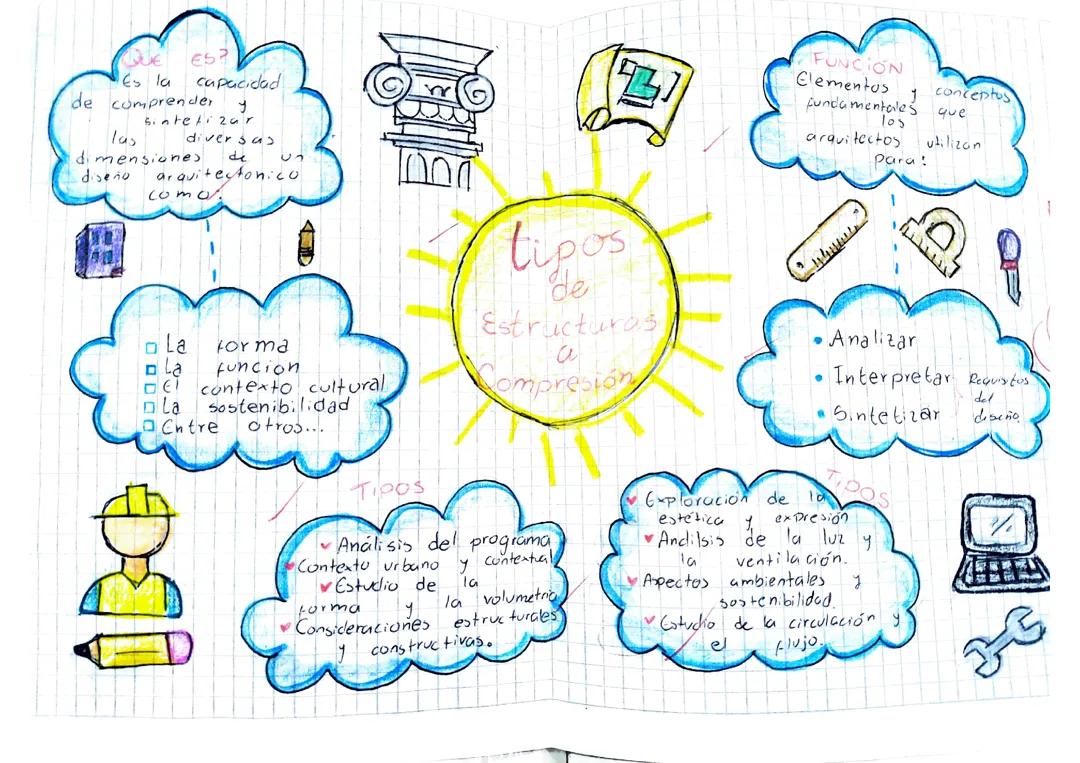 QUE ES?
Es la capacidad
de comprender y
sintetizar
las diversas
dimensiones de un
diseño arquitectonico
como:
La forma
La funcion
El contexto cultural
La sostenibilidad
Entre otros...
tipos
de
Estructuras
a
Compresión
FUNCIÓN
Elementos y conceptos
fundamentales que
los
arquitectos utilizan
para:
Analizar
Interpretar
Sintetizar
Requisitos
del
diseño
TIPOS
Análisis del programa
Contexto urbano y contextual
Estudio de la
forma y la volumetria
Consideraciones estructurales
y constructivas.
TIPOS
Exploración de la
estética y expresión
Analisis de la luz y
la ventilación.
Aspectos ambientales y
sostenibilidad.
Estudio de la circulación y
el flujo.